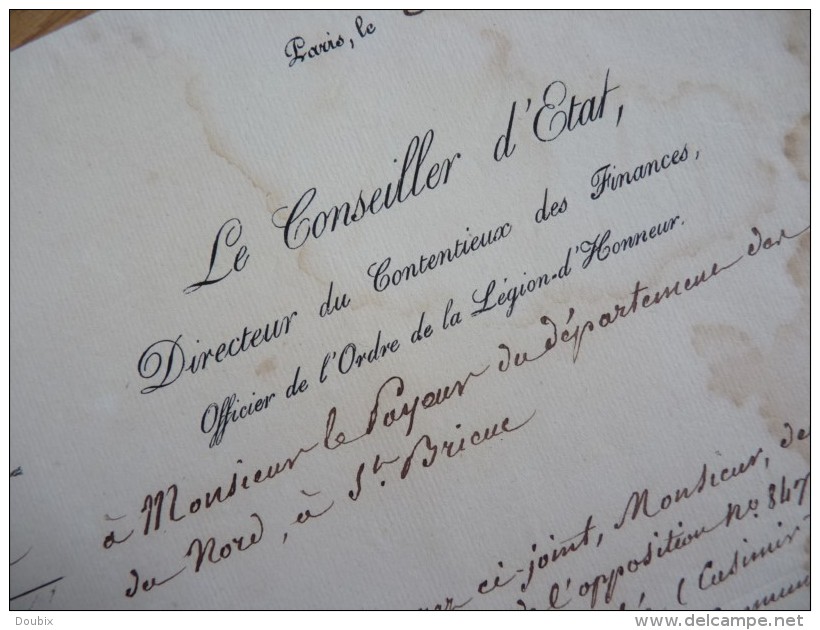 Paris, le
Le Conseiller d'Etat,
Directeur du Contentieux des Finances,
Officier de l'Ordre de la Légion-d'Honneur.
à Monsieur le Payeur du département des
du Nord, à St. Brieuc
ci-joint, Monsieur, de
l'opposition No. 847
(Casimir
Doubix
www.delcampe.net